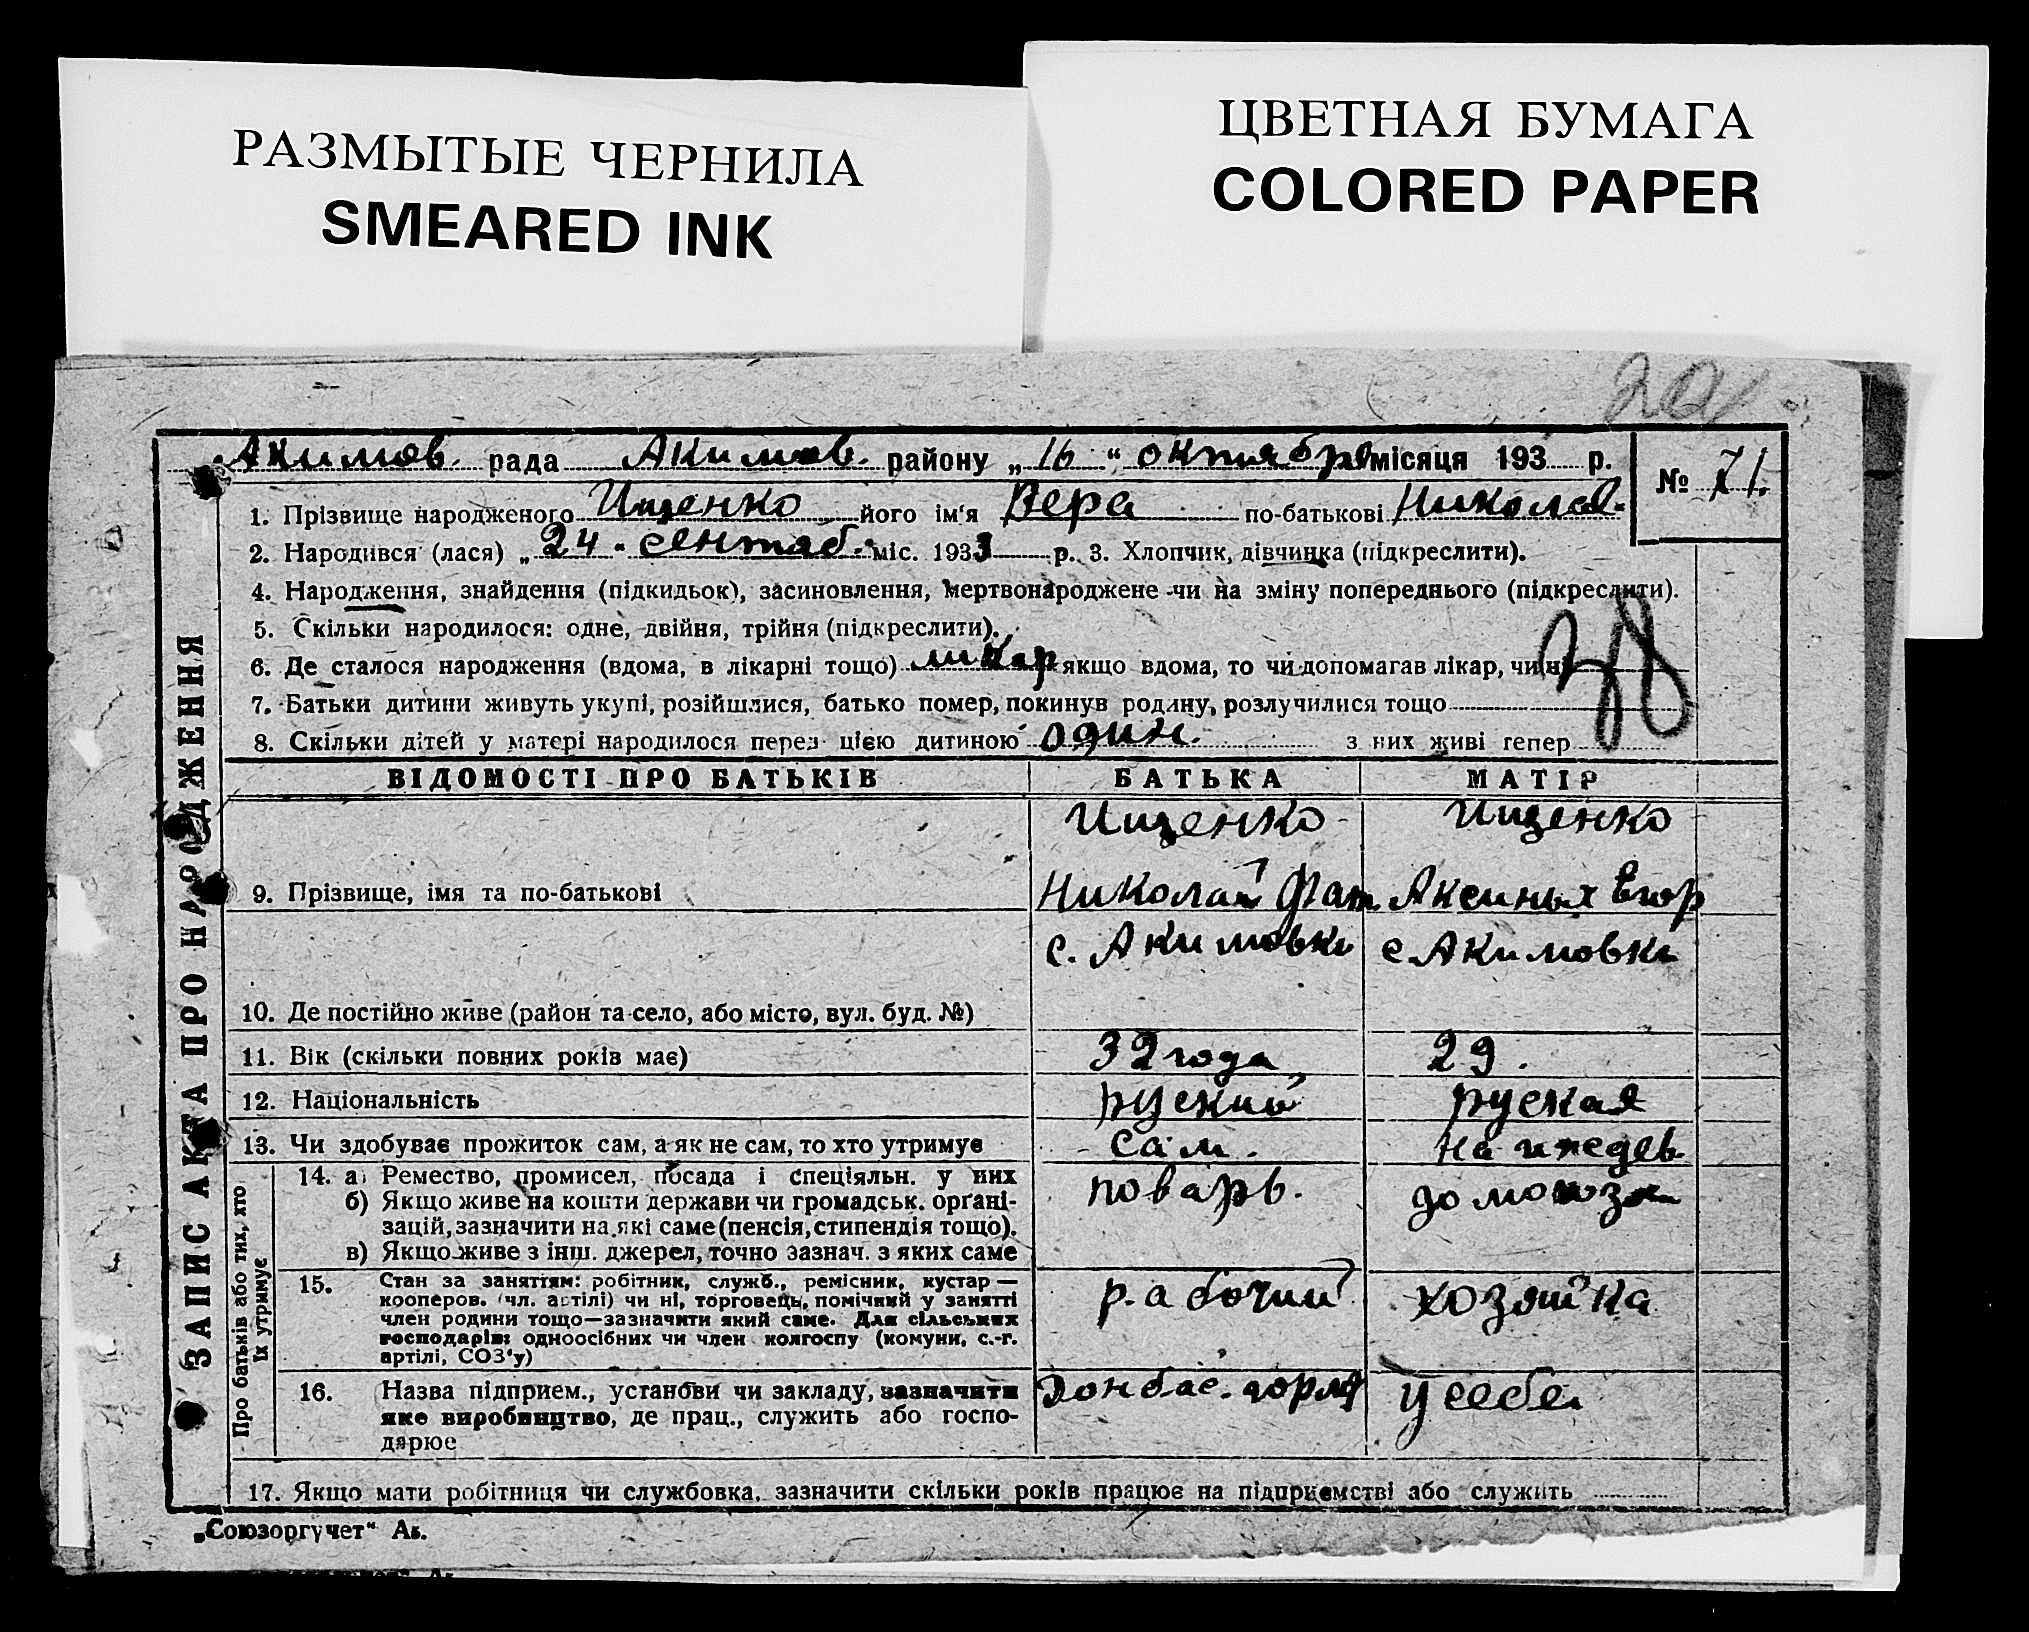 РАЗМЫТЫЕ ЧЕРНИЛА
SMEARED INK
ЦВЕТНАЯ БУМАГА
COLORED PAPER
Акимов. рада Акимов. району „16“ октября місяця 193 р.
№ 71.
1. Прізвище народженого Ищенко його ім'я Вера по-батькові Николаев.
2. Народився (лася) „24“ сентяб. міс. 1933 р. 3. Хлопчик, дівчинка (підкреслити).
4. Народження, знайдення (підкидьок), засиновлення, мертвонароджене чи на зміну попереднього (підкреслити).
5. Скільки народилося: одне, двійня, трійня (підкреслити).
6. Де сталося народження (вдома, в лікарні тощо) якщо вдома, то чи допомагав лікар, чи ні
7. Батьки дитини живуть укупі, розійшлися, батько помер, покинув родину, розлучилися тощо
8. Скільки дітей у матері народилося перед цією дитиною один. з них живі тепер
ЗАПИС АКТА ПРО НАРОДЖЕННЯ
ВІДОМОСТІ ПРО БАТЬКІВ БАТЬКА МАТІР
Ищенко Ищенко
9. Прізвище, імя та по-батькові Николай Аксинья Егор
с. Акимовки с Акимовки
10. Де постійно живе (район та село, або місто, вул. буд. №)
11. Вік (скільки повних років має) 32 года 29.
12. Національність руский руская
13. Чи здобуває прожиток сам, а як не сам, то хто утримує сам. на иждев.
Про батьків або тих, хто їх утримує
14. а) Ремество, промисел, посада і спеціяльн. у них поварь. домохоз
б) Якщо живе на кошти держави чи громадськ. організацій, зазначити на які саме (пенсія, стипендія тощо).
в) Якщо живе з інш. джерел, точно зазнач. з яких саме
15. Стан за заняттям: робітник, служб., ремісник, кустар — рабочий хозяйка
кооперов. (чл. артілі) чи ні, торговець, помічний у занятті
член родини тощо—зазначити який саме. Для сільських
господарів: одноосібних чи член колгоспу (комуни, с.-г.
артілі, СОЗ'у)
16. Назва підприєм., установи чи закладу, зазначити Донбас. у себе
яке виробництво, де прац., служить або госпо-
дарює
17. Якщо мати робітниця чи службовка, зазначити скільки років працює на підприємстві або служить
„Союзоргучет“